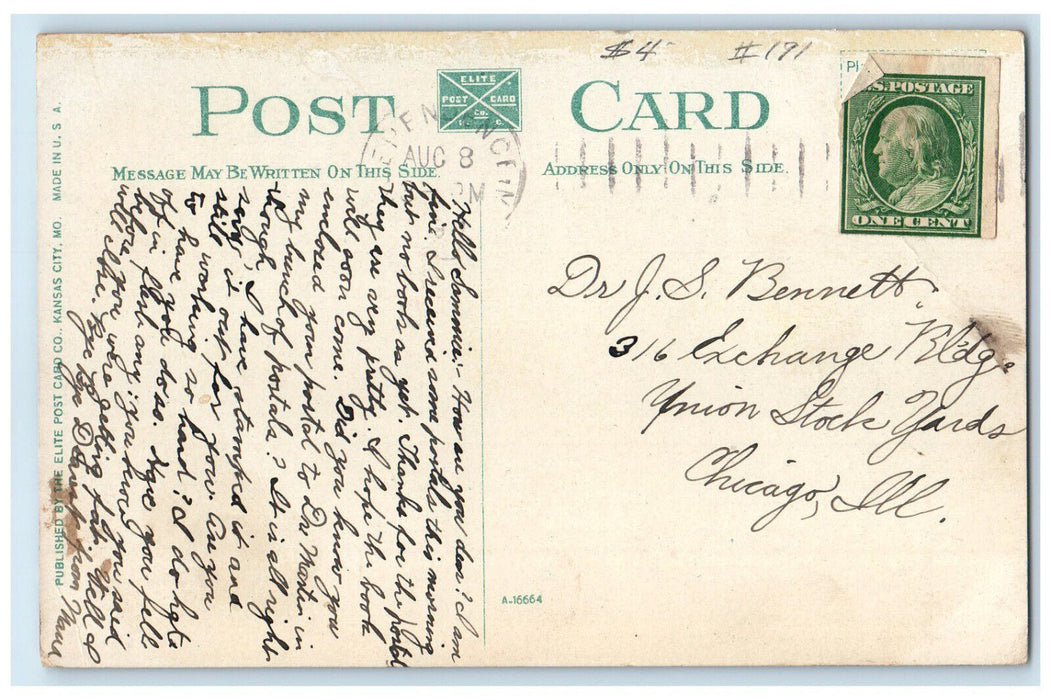 $4 #191
POST CARD
ELITE
POST CARD
CO.
AUG 8
PM
U.S. POSTAGE
ONE CENT
MESSAGE MAY BE WRITTEN ON THIS SIDE.
ADDRESS ONLY ON THIS SIDE.
PUBLISHED BY THE ELITE POST CARD CO., KANSAS CITY, MO. MADE IN U. S. A.
Hello Sammie:- How are you dear? I am
fine. I received some postals this morning
but no book as yet. Thanks for the postals
they are very pretty. I hope the book
will soon come. Did you know you
enclosed your postal to Dr. Martin in
my bunch of postals? It is all right
though, I have stamped it and
sent it out for you. Are you
still working so hard? I do hate
to have you do so. Age you fell
off in flesh any; you know you said
before, you were getting fat. Well I
will close. Bye Bye Dear from
A-16664
Dr J. S. Bennett.
316 Exchange Bldg.
Union Stock Yards
Chicago, Ill.